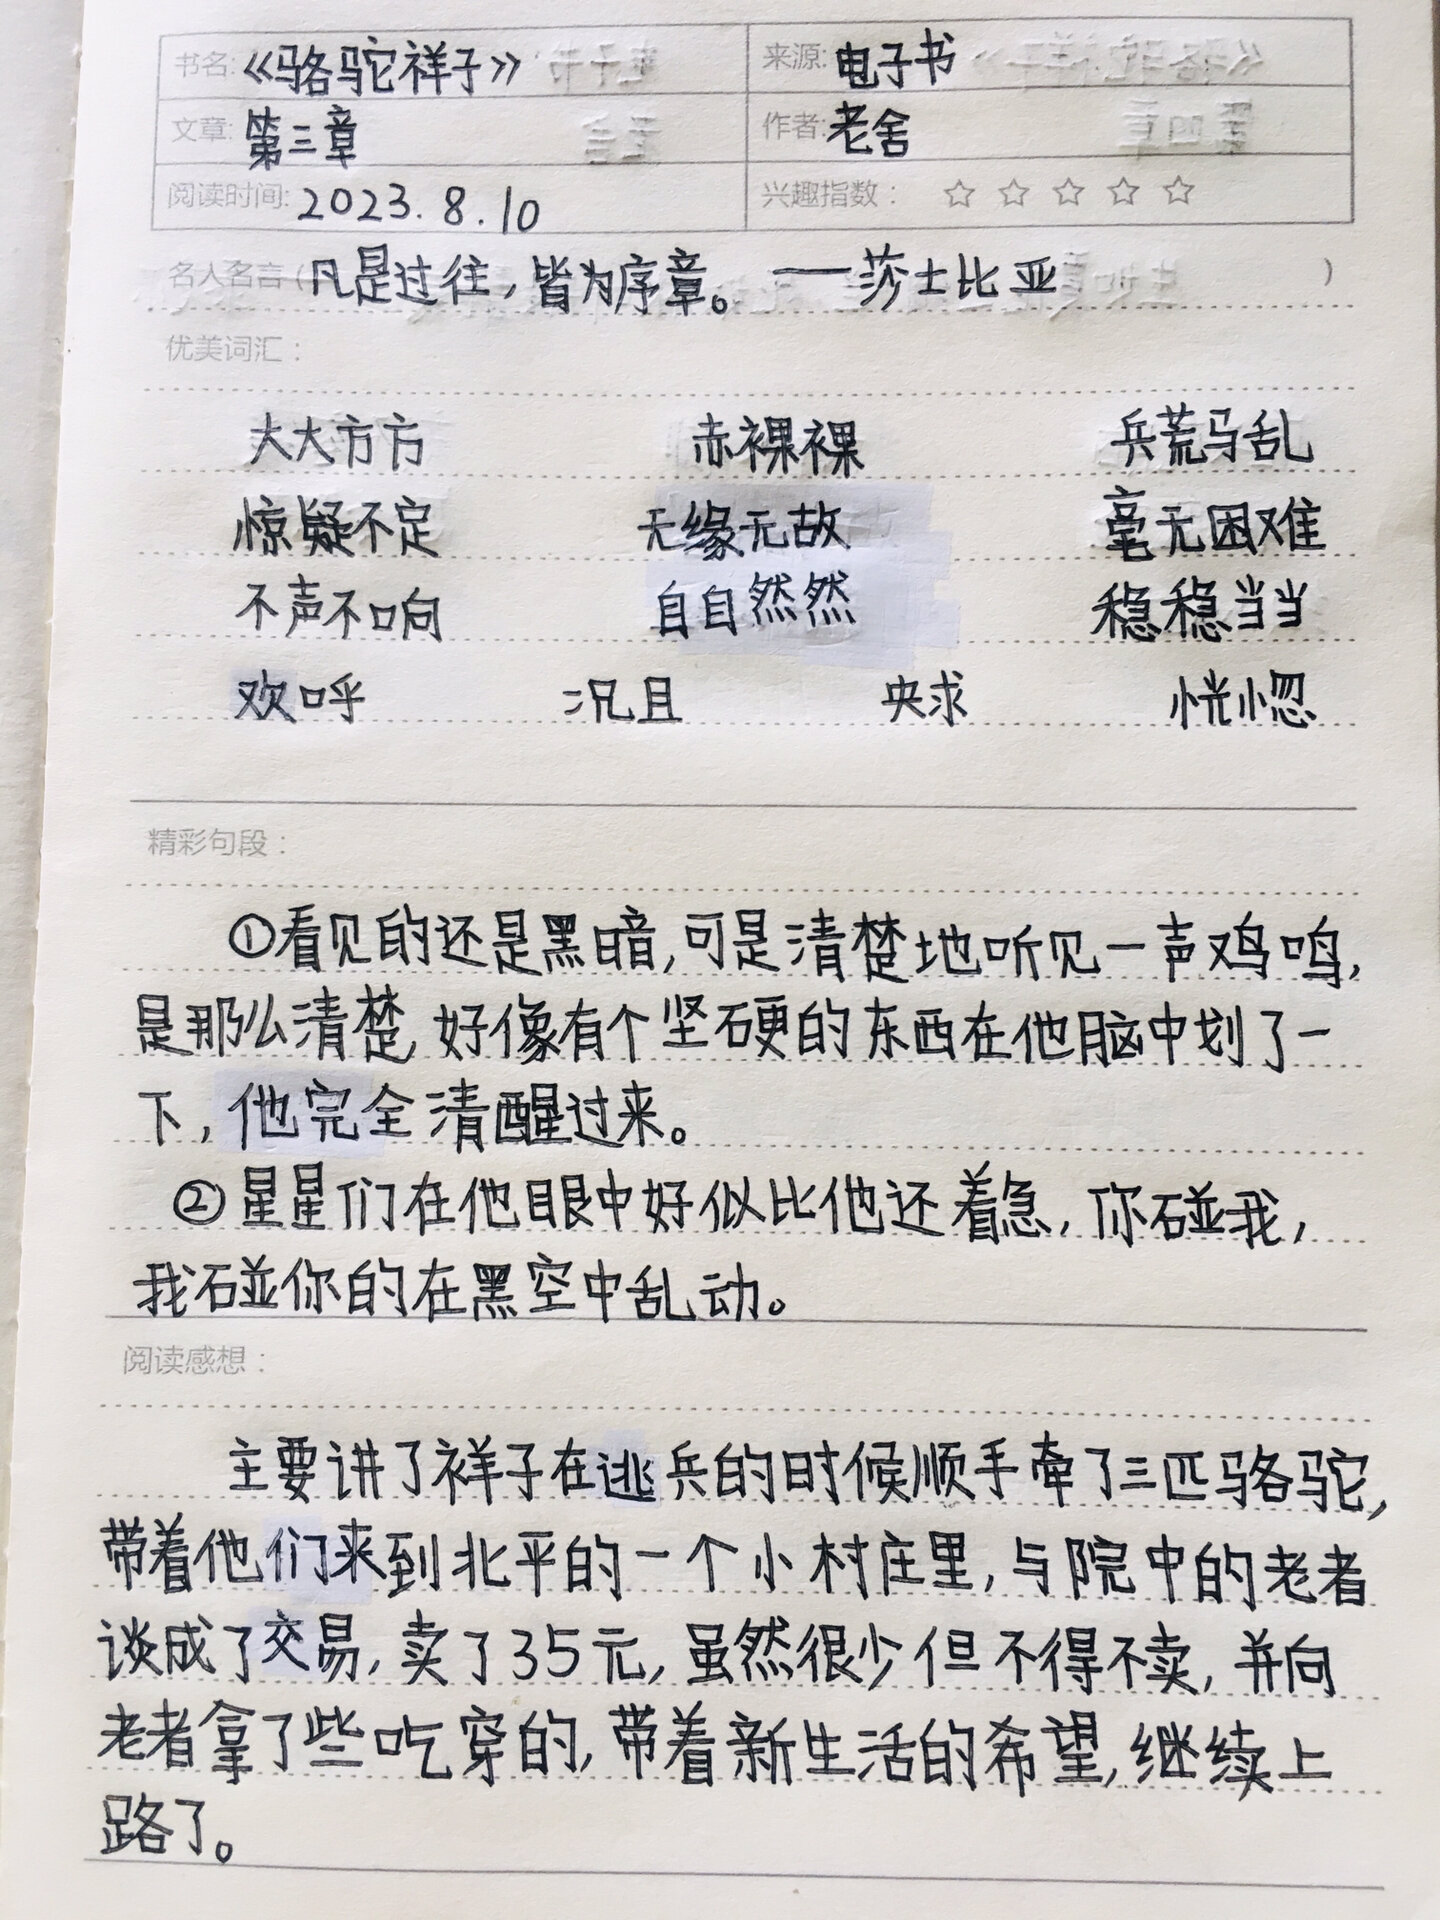 书名:《骆驼祥子》 来源:电子书
文章:第三章 作者:老舍
阅读时间:2023.8.10 兴趣指数：☆ ☆ ☆ ☆ ☆
名人名言(凡是过往，皆为序章。——莎士比亚)
优美词汇：
大大方方 赤裸裸 兵荒马乱
惊疑不定 无缘无故 毫无困难
不声不响 自自然然 稳稳当当
欢呼 况且 央求 恍惚
精彩句段：
①看见的还是黑暗,可是清楚地听见一声鸡鸣,
是那么清楚,好像有个坚硬的东西在他脑中划了一
下,他完全清醒过来。
②星星们在他眼中好似比他还着急,你碰我,
我碰你的在黑空中乱动。
阅读感想：
主要讲了祥子在逃兵的时候顺手牵了三匹骆驼,
带着他们来到北平的一个小村庄里,与院中的老者
谈成了交易,卖了35元,虽然很少但不得不卖,并向
老者拿了些吃穿的,带着新生活的希望,继续上
路了。